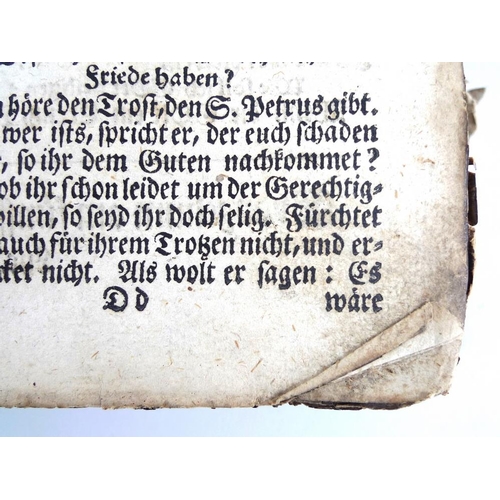 Friede haben?
höre den Trost, den S. Petrus gibt.
wer ists, spricht er, der euch schaden
so ihr dem Guten nachkommet?
ob ihr schon leidet um der Gerechtig-
willen, so seyd ihr doch selig. Fürchtet
auch für ihrem Trotzen nicht, und er-
cket nicht. Als wolt er sagen: Es
D d wäre